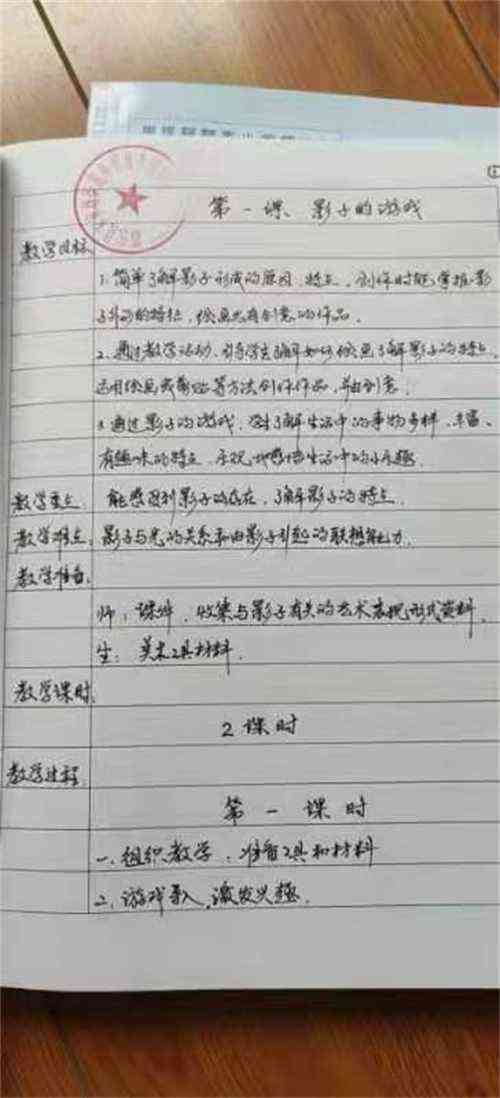 第一课 影子的游戏
教学目标
1. 简单了解影子形成的原因、特点，创作时能掌握影
子外形的特征，绘画出有创意的作品。
2. 通过教学活动，引导学生了解如何绘画了解影子的特点，
运用绘画或剪贴等方法创作作品，并由创意。
3. 通过影子的游戏，学生了解生活中的事物多样、丰富、
有趣味的特点，乐观地感悟生活中的小乐趣。
教学重点 能感受到影子的存在，了解影子的特点。
教学难点： 影子与光的关系和由影子引起的联想能力。
教学准备：
师：课件，收集与影子有关的艺术表现形式资料。
生：美术工具材料。
教学课时：
2课时
教学过程
第一课时
一、组织教学，准备工具和材料
二、游戏导入，激发兴趣。